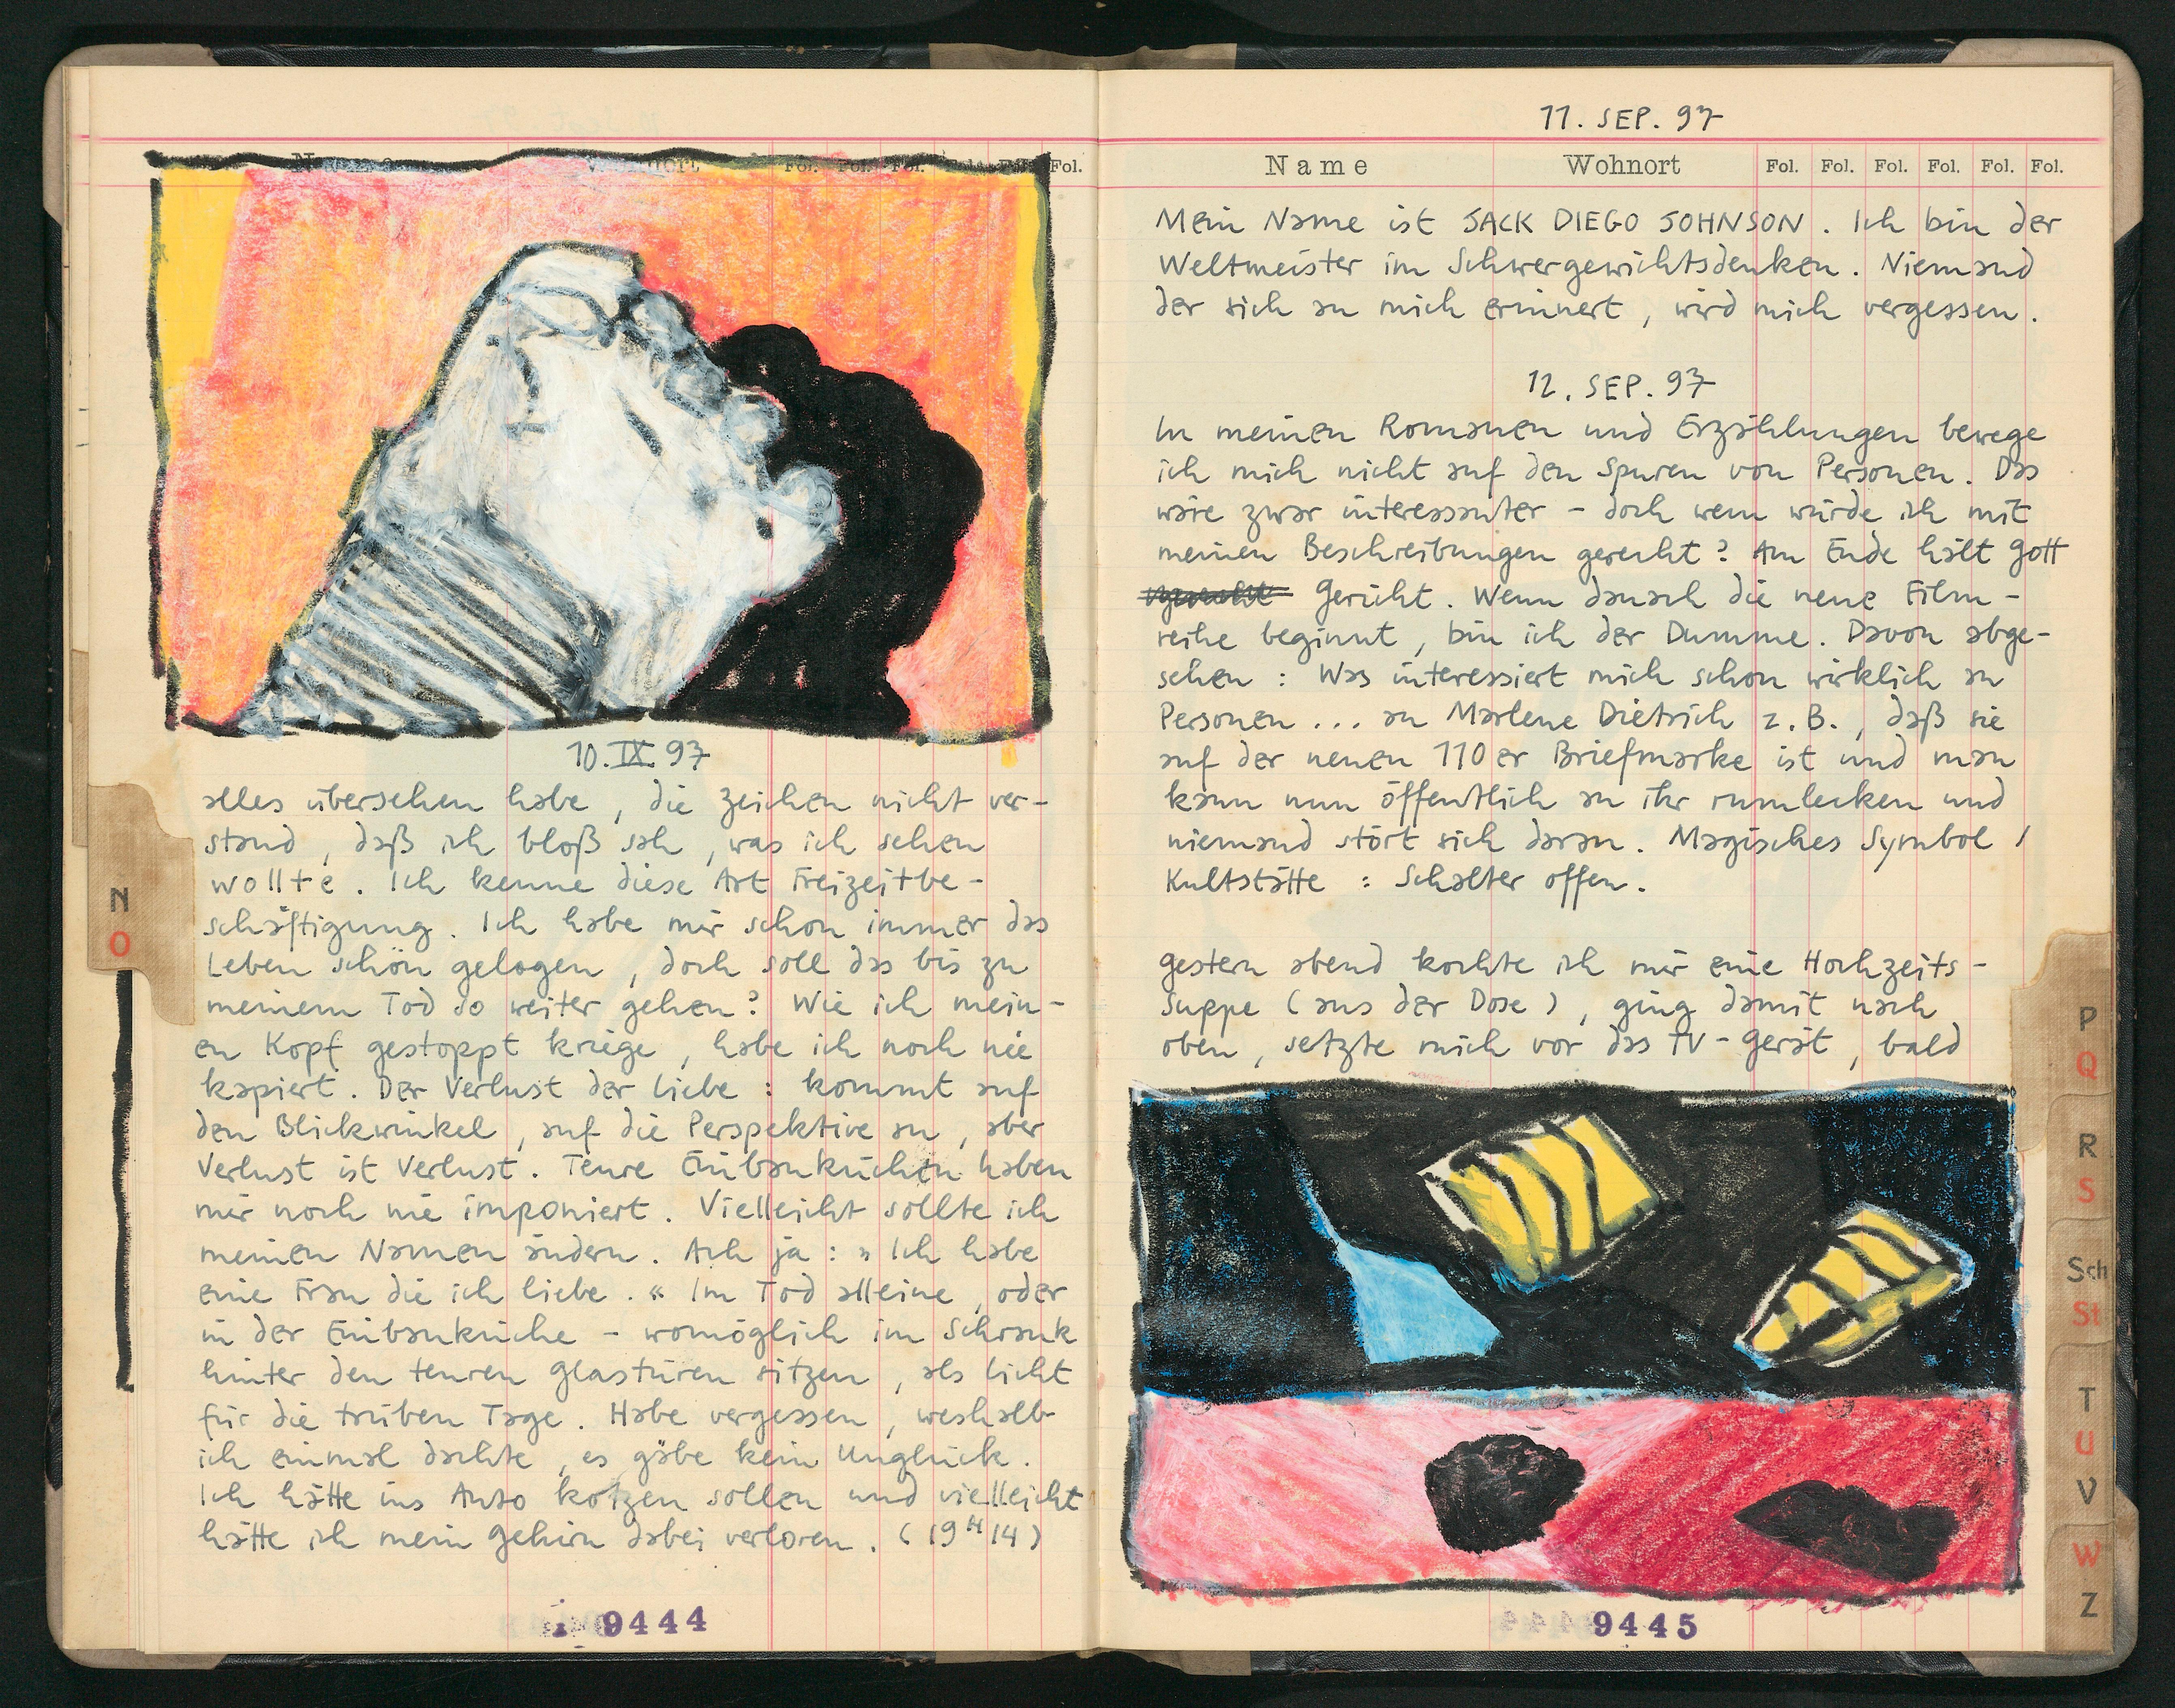 10. IX. 97
alles übersehen habe, die Zeichen nicht ver-
stand, daß ich bloß sah, was ich sehen
wollte. Ich kenne diese Art Freizeitbe-
schäftigung. Ich habe mir schon immer das
Leben schön gelogen, doch soll das bis zu
meinem Tod so weiter gehen? Wie ich mein-
en Kopf gestoppt kriege, habe ich noch nie
kapiert. Der Verlust der Liebe: kommt auf
den Blickwinkel, auf die Perspektive an, aber
Verlust ist Verlust. Teure Einbauküchen haben
mir noch nie imponiert. Vielleicht sollte ich
meinen Namen ändern. Ach ja: »Ich habe
eine Frau die ich liebe.« Im Tod alleine, oder
in der Einbauküche – womöglich im Schrank
hinter den teuren Glastüren sitzen, als Licht
für die trüben Tage. Habe vergessen, weshalb
ich einmal dachte, es gäbe kein Unglück.
Ich hätte ins Auto kotzen sollen und vielleicht
hätte ich mein Gehirn dabei verloren. (19H14)
9444
N
O
11. SEP. 97
Name Wohnort Fol. Fol. Fol. Fol. Fol. Fol.
Mein Name ist JACK DIEGO JOHNSON. Ich bin der
Weltmeister im Schwergewichtsdenken. Niemand
der sich an mich erinnert, wird mich vergessen.
12. SEP. 97
In meinen Romanen und Erzählungen bewege
ich mich nicht auf den Spuren von Personen. Das
wäre zwar interessanter – doch wem würde ich mit
meinen Beschreibungen gerecht? Am Ende hält Gott
Gericht. Wenn danach die neue Film-
reihe beginnt, bin ich der Dumme. Davon abge-
sehen: Was interessiert mich schon wirklich an
Personen ... an Marlene Dietrich z.B., daß sie
auf der neuen 110er Briefmarke ist und man
kann nun öffentlich an ihr rumlecken und
niemand stört sich daran. Magisches Symbol /
Kultstätte: Schalter offen.
Gestern abend kochte ich mir eine Hochzeits-
suppe (aus der Dose), ging damit nach
oben, setzte mich vor das TV-Gerät, bald
9445
P
Q
R
S
Sch
St
T
U
V
W
Z